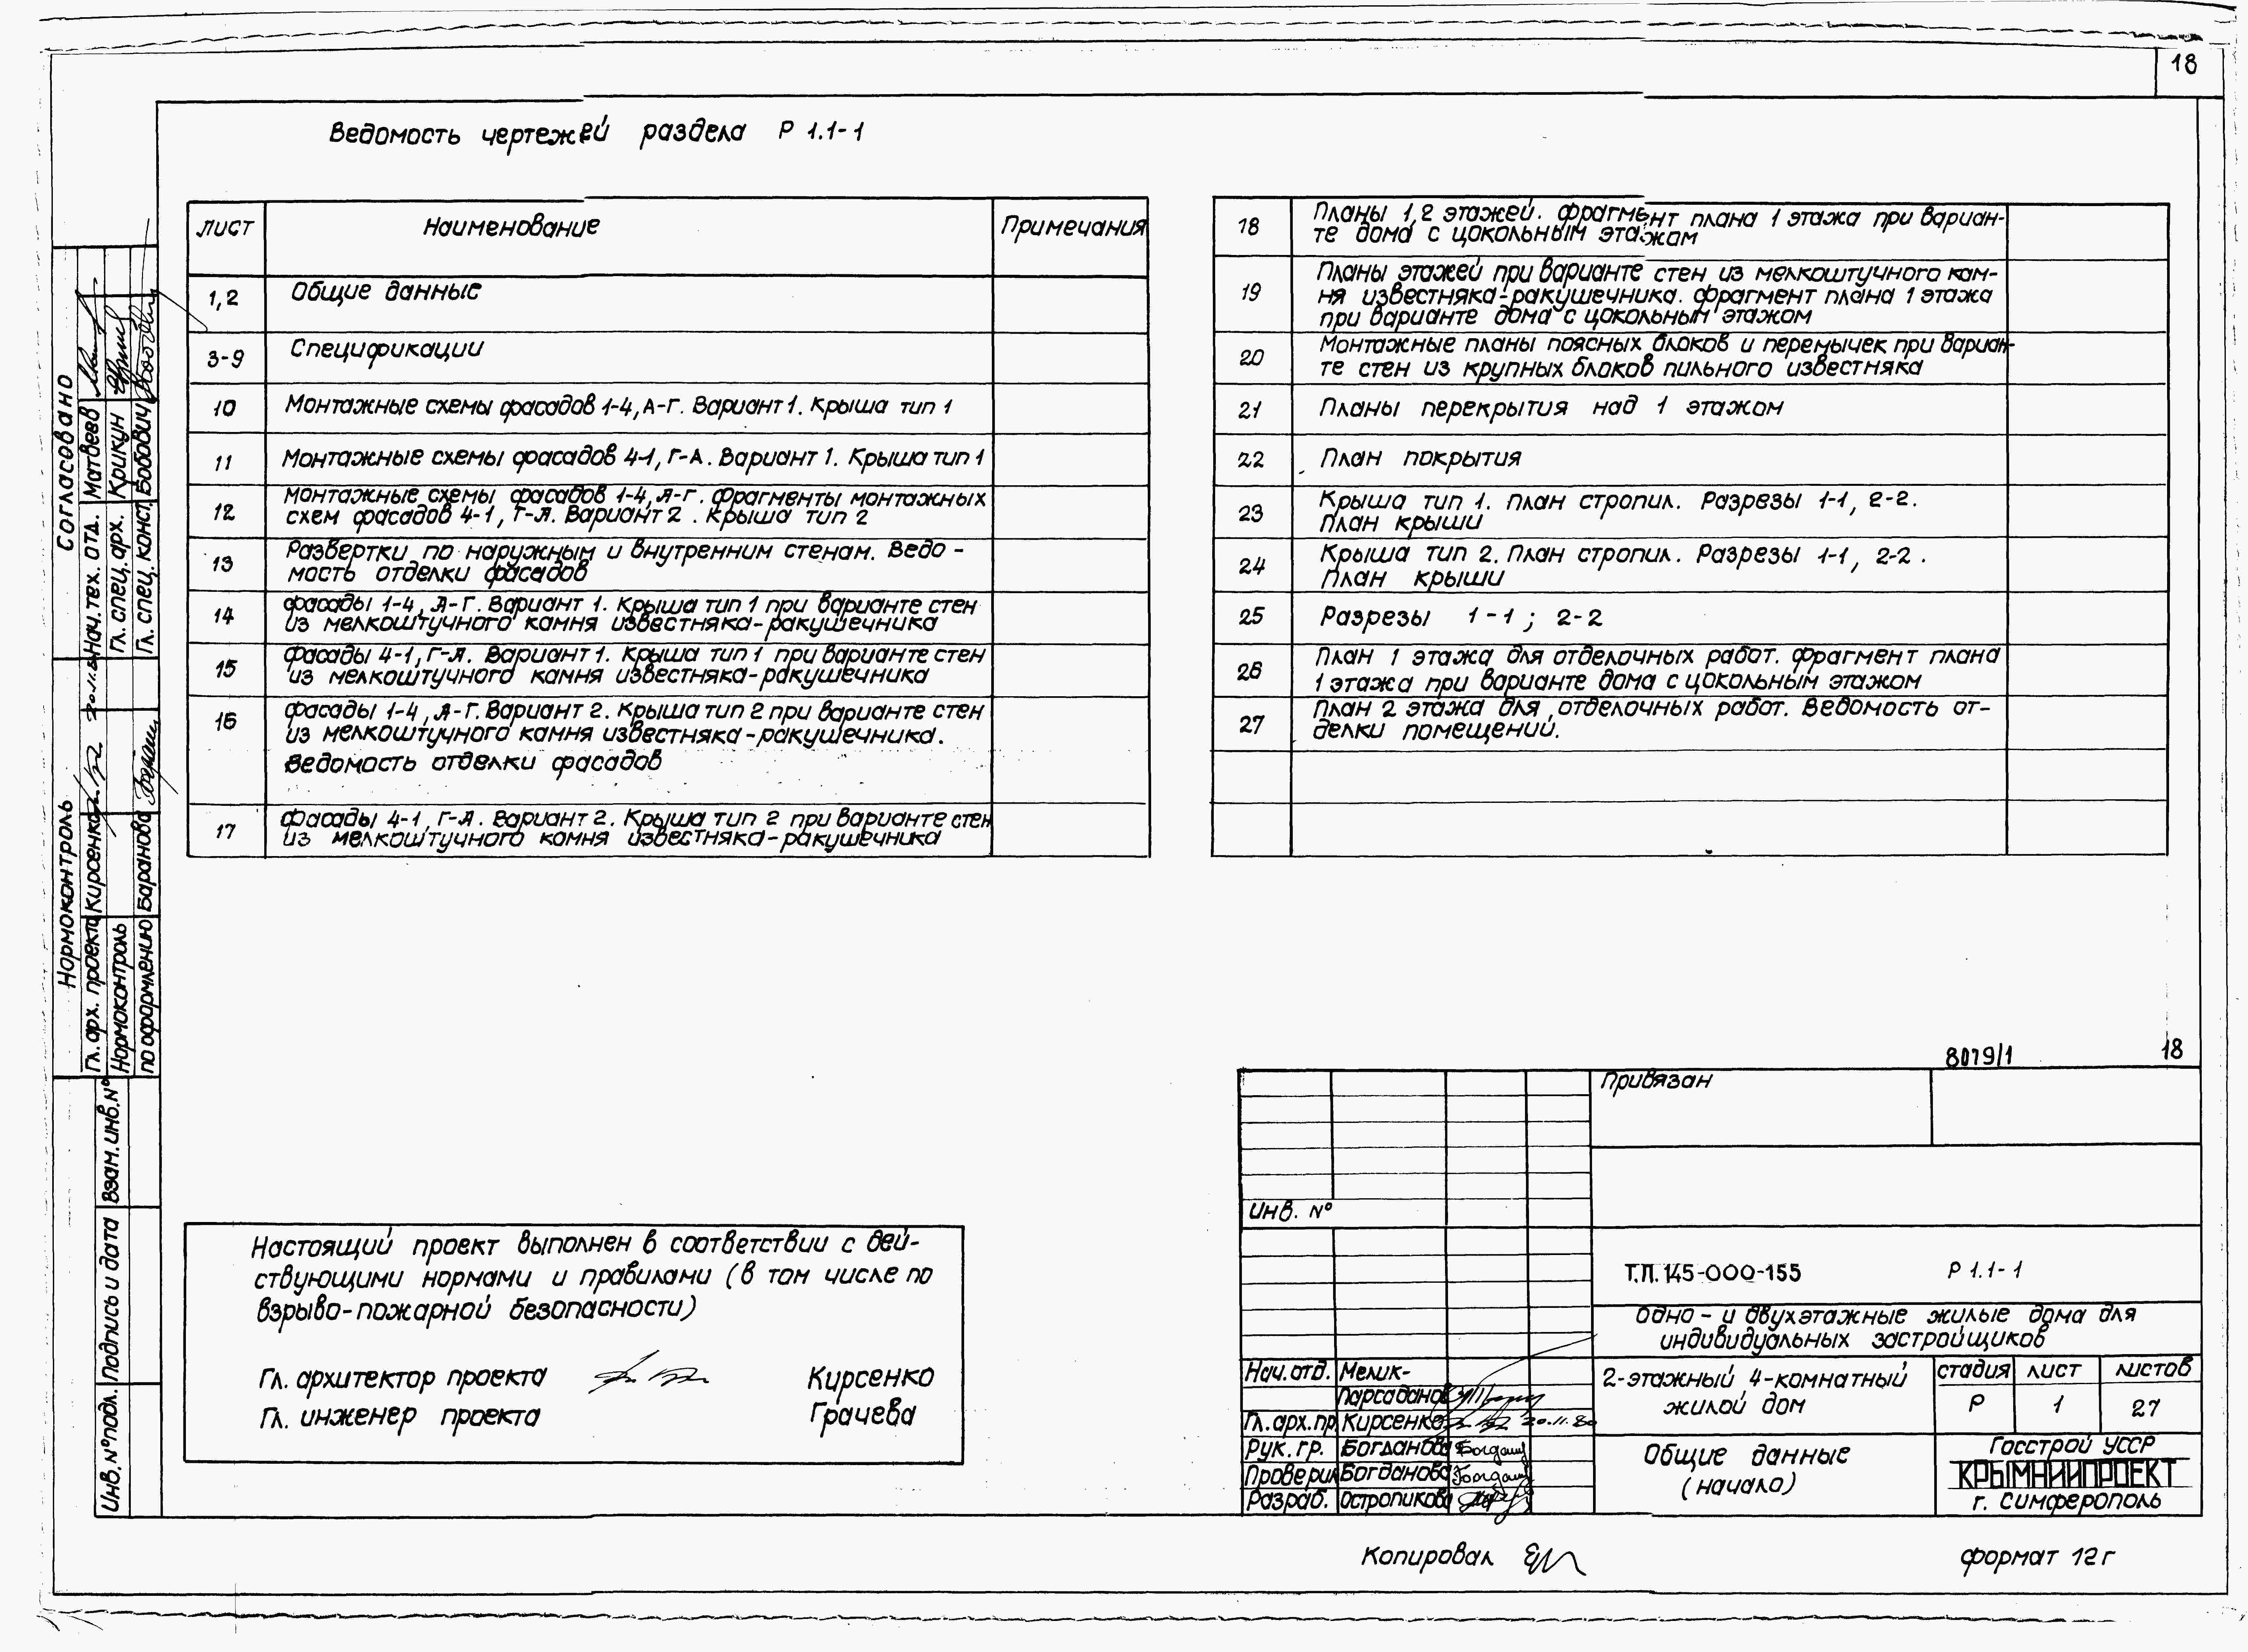 18
Ведомость чертежей раздела Р 1.1-1
лист Наименование Примечания
1,2 Общие данные
3-9 Спецификации
10 Монтажные схемы фасадов 1-4, А-Г. Вариант 1. Крыша тип 1
11 Монтажные схемы фасадов 4-1, Г-А. Вариант 1. Крыша тип 1
12 Монтажные схемы фасадов 1-4, А-Г. Фрагменты монтажных
схем фасадов 4-1, Г-А. Вариант 2. Крыша тип 2
13 Развертки по наружным и внутренним стенам. Ведо-
мость отделки фасадов
14 Фасады 1-4, А-Г. Вариант 1. Крыша тип 1 при варианте стен
из мелкоштучного камня известняка-ракушечника
15 Фасады 4-1, Г-А. Вариант 1. Крыша тип 1 при варианте стен
из мелкоштучного камня известняка-ракушечника
16 Фасады 1-4, А-Г. Вариант 2. Крыша тип 2 при варианте стен
из мелкоштучного камня известняка-ракушечника.
Ведомость отделки фасадов
17 Фасады 4-1, Г-А. Вариант 2. Крыша тип 2 при варианте стен
из мелкоштучного камня известняка-ракушечника
18 Планы 1,2 этажей. Фрагмент плана 1 этажа при вариан-
те дома с цокольным этажом
19 Планы этажей при варианте стен из мелкоштучного кам-
ня известняка-ракушечника. Фрагмент плана 1 этажа
при варианте дома с цокольным этажом
20 Монтажные планы поясных блоков и перемычек при вариан-
те стен из крупных блоков пильного известняка
21 Планы перекрытия над 1 этажом
22 План покрытия
23 Крыша тип 1. План стропил. Разрезы 1-1, 2-2.
План крыши
24 Крыша тип 2. План стропил. Разрезы 1-1, 2-2.
План крыши
25 Разрезы 1-1; 2-2
26 План 1 этажа для отделочных работ. Фрагмент плана
1 этажа при варианте дома с цокольным этажом
27 План 2 этажа для отделочных работ. Ведомость от-
делки помещений.
Согласовано
Нач. тех. отд. Матвеев
Гл. спец. арх. Крикун
Гл. спец. конст. Бобович
Нормоконтроль
Гл. арх. проекта Кирсенко
Нормоконтроль
по оформлению Баранова
Взам. инв. №
Подпись и дата
Инв. № подл.
Настоящий проект выполнен в соответствии с дей-
ствующими нормами и правилами (в том числе по
взрыво-пожарной безопасности)
Гл. архитектор проекта Кирсенко
Гл. инженер проекта Грачева
8079/1 18
Привязан
Инв. №
Т.П. 145-000-155 Р 1.1-1
Одно- и двухэтажные жилые дома для
индивидуальных застройщиков
Нач. отд. Мелик-
Парсаданов
Гл. арх. пр. Кирсенко 20.11.80
Рук. гр. Богданова
Проверил Богданова
Разраб. Остропикова
2-этажный 4-комнатный
жилой дом
стадия лист листов
Р 1 27
Общие данные
(начало)
Госстрой УССР
КРЫМНИИПРОЕКТ
г. Симферополь
Копировал
Формат 12г